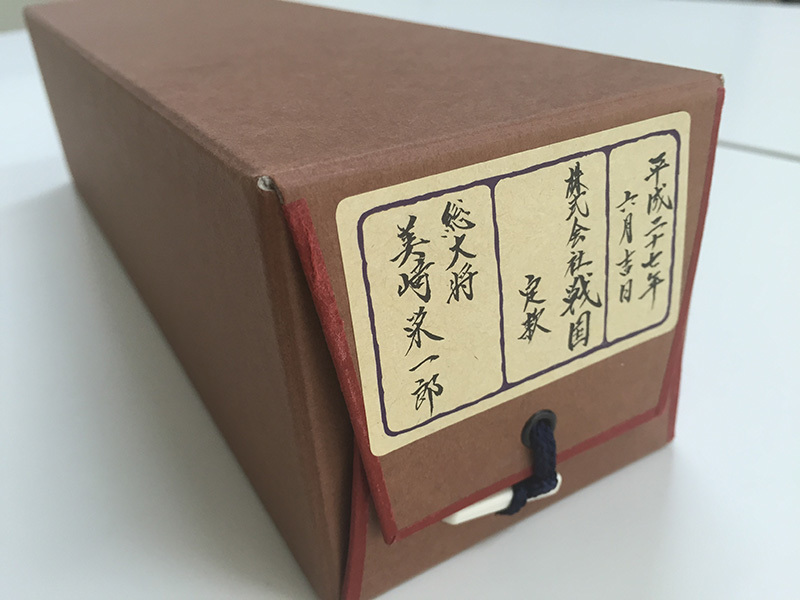 平成二十七年
六月吉日
株式会社戦国
定款
総大将
美崎栄一郎